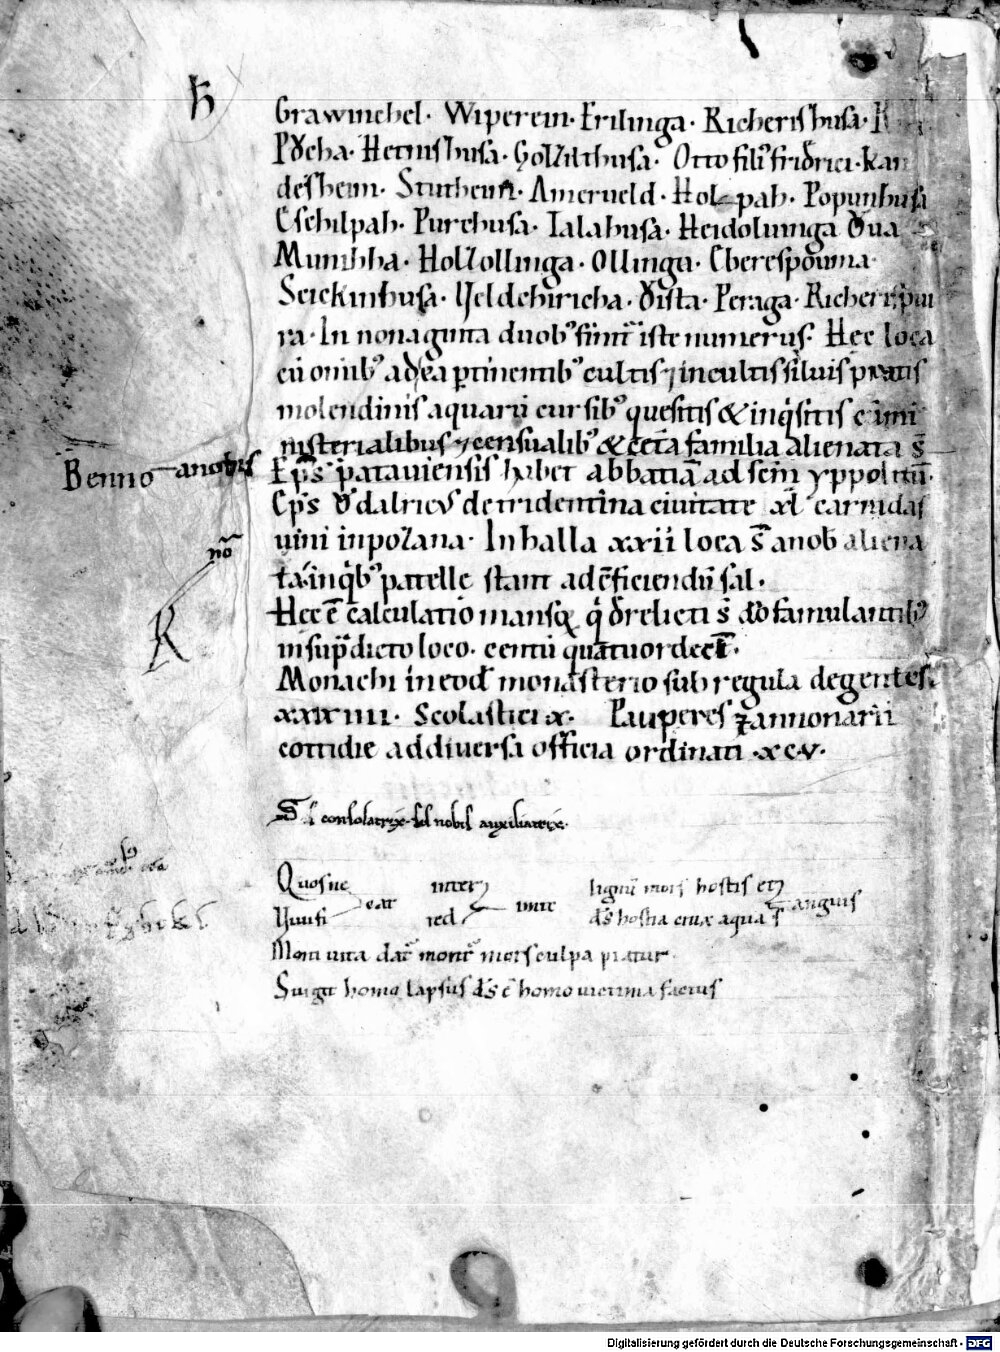 h
Grawinchel. Wiperein. Erilinga. Richerishusa.
Pͦcha. Heenishusa. Otto filiꝰ friđrici. kan
desheim. Stutheim. Amerueld. Holzpah. Popunhusa
Eschilpah. Purchusa. Talahusa. Heidoluinga
Munihha. Holzollinga. Ollinga. Eberespoíuna
Seickinhusa. Ueldchiricha. Peraga. Richerispiu
ra. In nonaginta duobꝰ finit̄ iste numerus. Hec loca
cū om̄ibꝰ ad ea ꝑtinentibꝰ cultis ⁊ incultis siluis pratis
molendinis aquarū cursibꝰ quesitis & inq̇sitis cū mi
nisterialibus ⁊ censualibꝰ & cet̄a familia alienata s̄
Benno a nobis Ep̄s patauiensis habet abbatiā ad sc̄m yppolitū.
Ep̄s Vͦdalricꝰ de tridentina ciuitate xl carradas
uini in pozana. In halla xxii loca s̄ a nob̄ aliena
no
ta. in q̇bꝰ patelle stant ad efficiendū sal.
R
Hec ē calculatio mansoꝝ q̇ derelicti s̄ do famulantibꝰ
in sup̄dicto loco. centū quatuordecē.
Monachi in eod̄ monasterio sub regula degentes.
xxxiiii. Scolastici x. Pauperes ⁊ annonarii
cottidie ad diuersa officia ordinati .xcv.
consolatrix. sed nobis auxiliatrix.
Quos ne inter lignū mors hostis et
eat imit anguis
Viuifi red ds̄ hostia crux aqua s
Mom uita dat̄ morit̄ mors culpa piatur.
Surgit homo lapsus ds̄ ē homo uictima factus
Digitalisierung gefördert durch die Deutsche Forschungsgemeinschaft - DFG